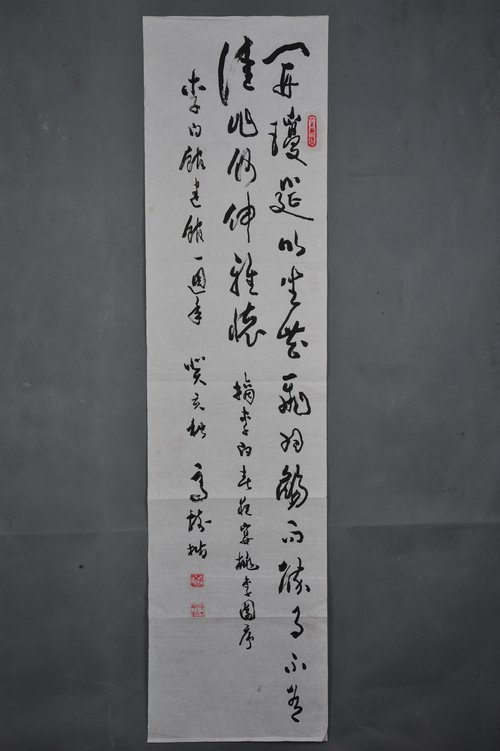 開瓊筵以坐花飛羽觴而醉月不有
佳作何伸雅懷
摘李白春夜宴桃李園序
李白館建館一週年 癸亥秋